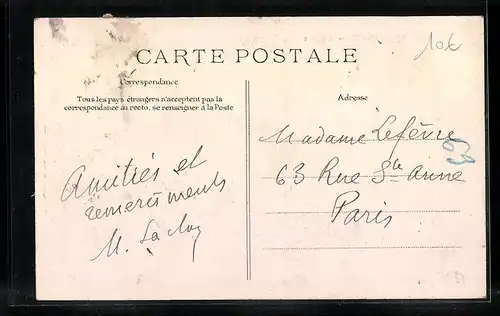 10€
CARTE POSTALE
Correspondance
Tous les pays étrangers n'acceptent pas la
correspondance au recto, se renseigner à la Poste
Adresse
Amitiés et
remerciments
M.
Madame Lefévre
63 Rue Ste Anne
Paris
63